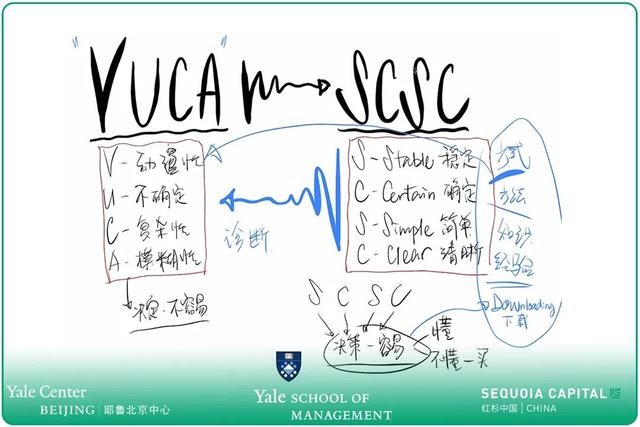 "VUCA" → SCSC
V - 动荡性
U - 不确定
C - 复杂性
A - 模糊性
决定·不容易
诊断
S - Stable 稳定
C - Certain 确定
S - Simple 简单
C - Clear 清晰
方法
知识
经验
Downloading
下载
S C S C
决策一容易
懂
不懂一买
Yale Center
BEIJING | 耶鲁北京中心
Yale SCHOOL OF
MANAGEMENT
SEQUOIA CAPITAL
红杉中国 | CHINA